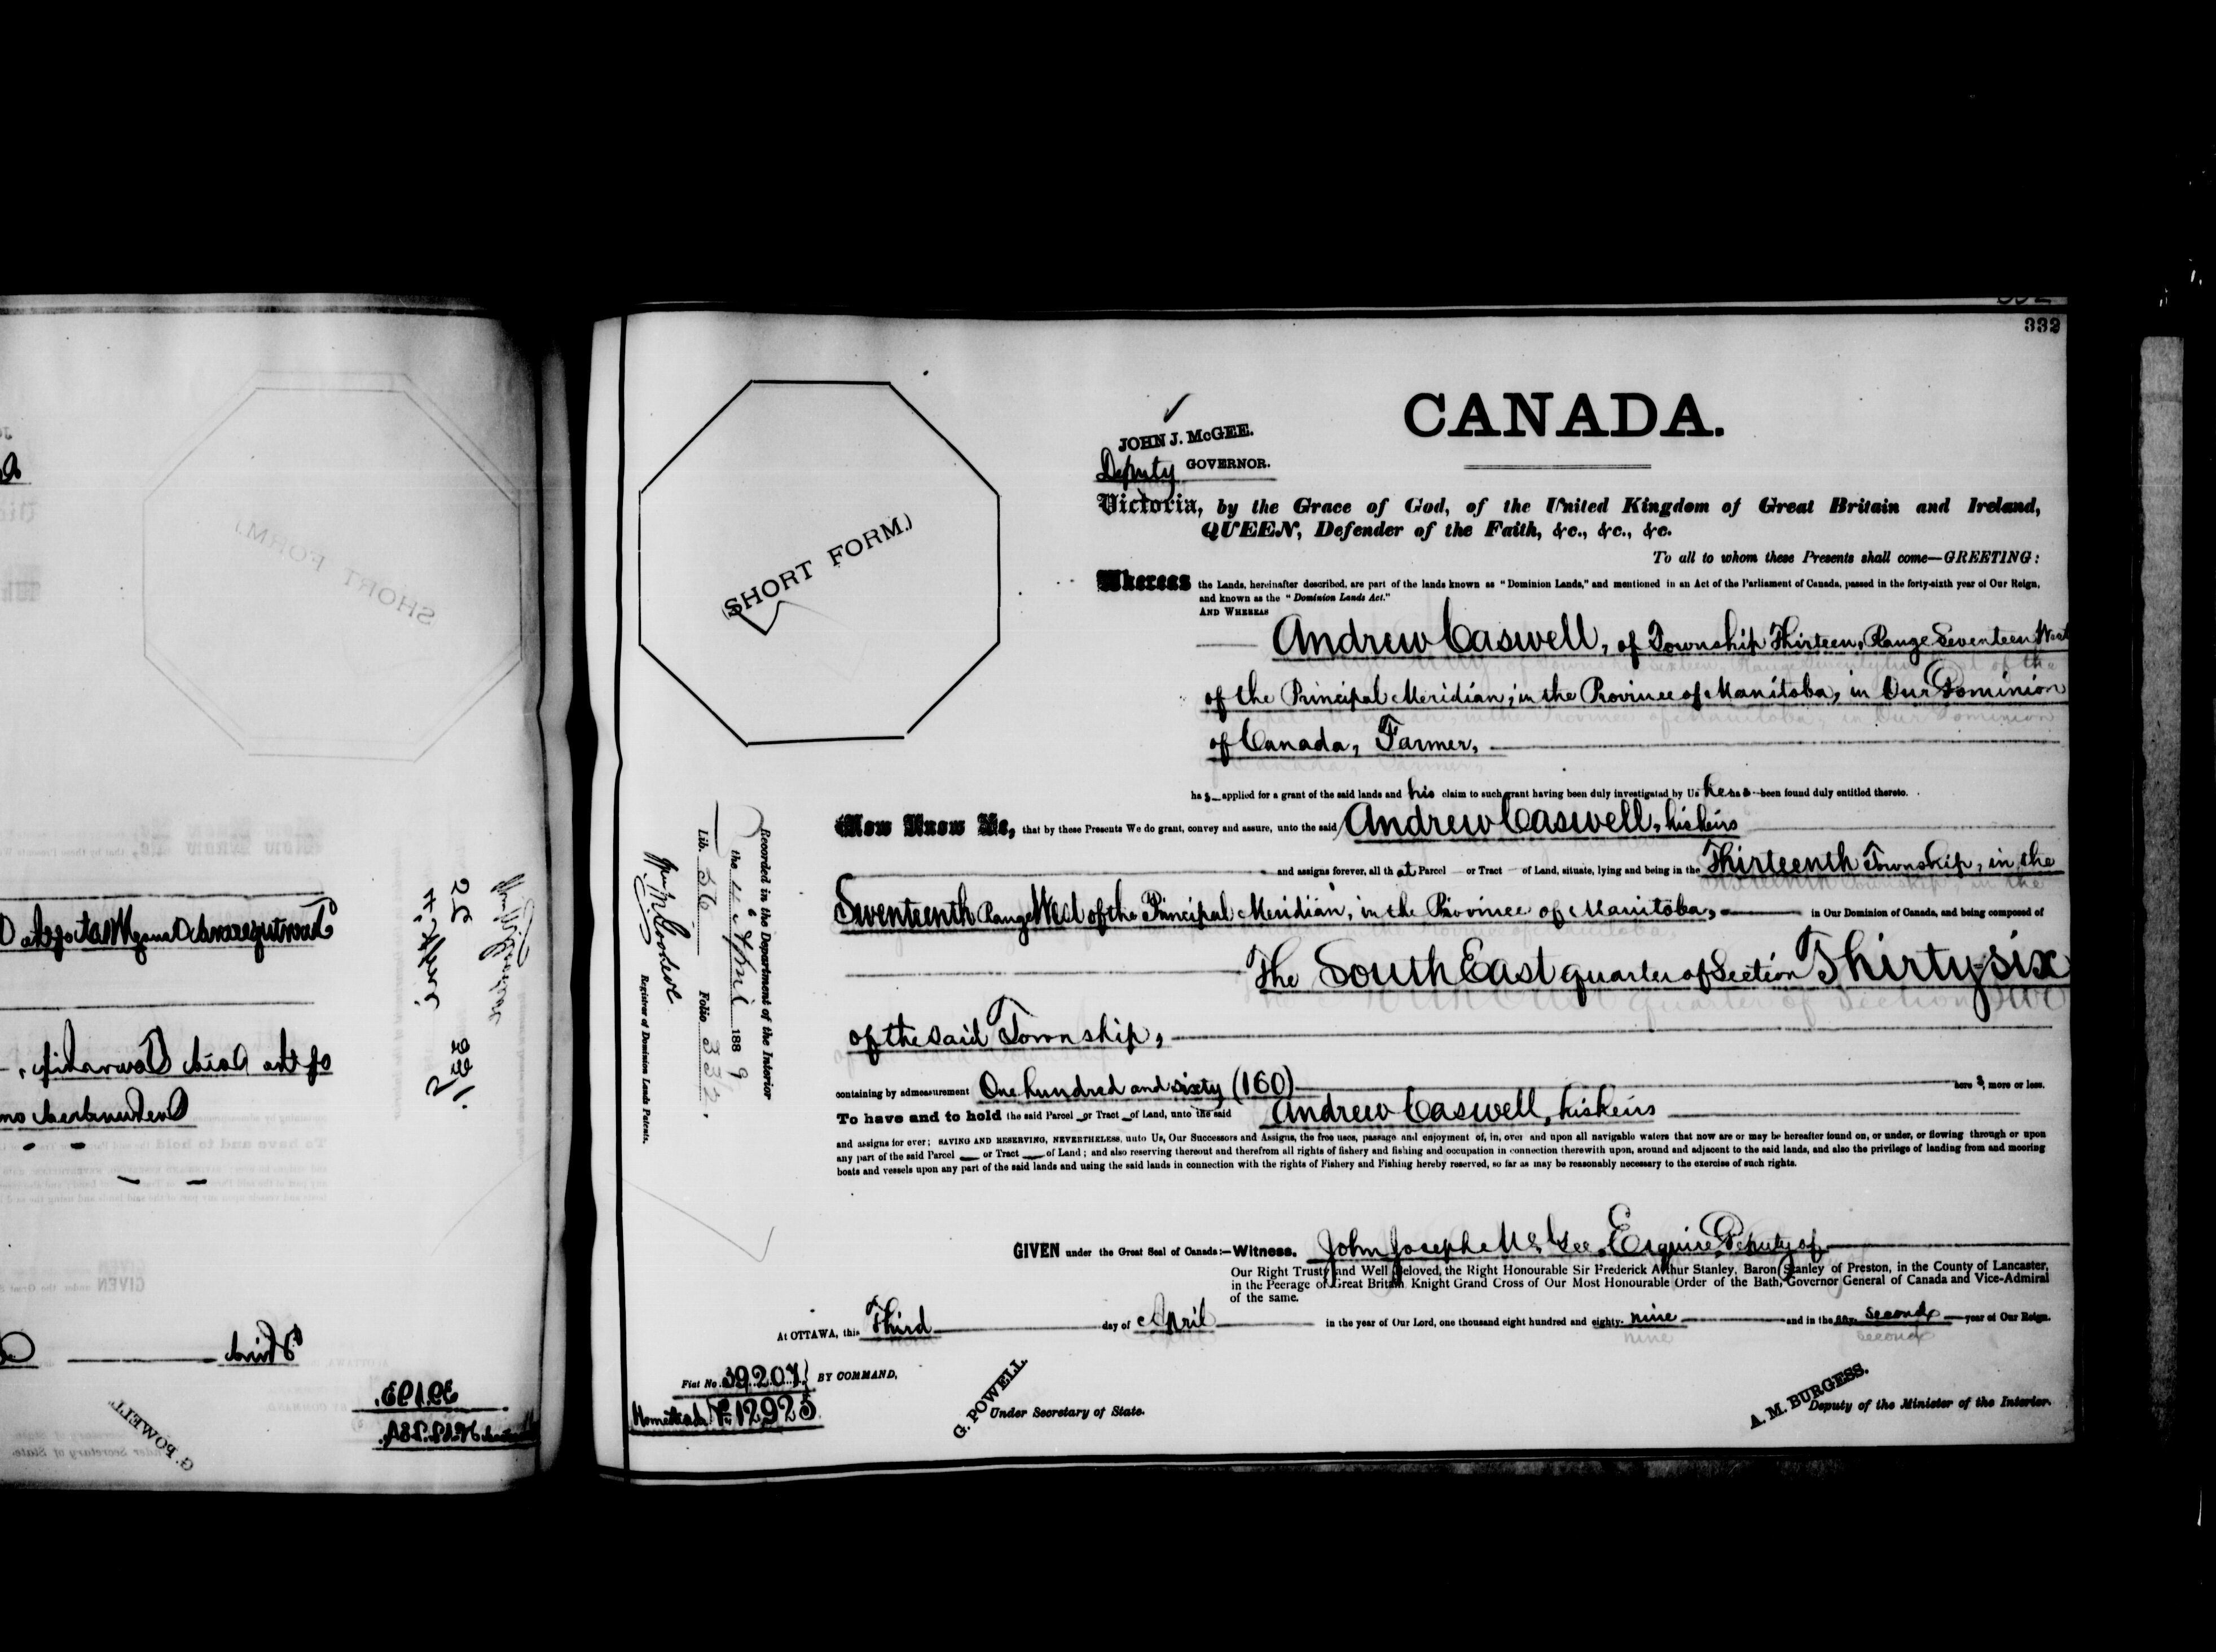 332
CANADA.
JOHN J. McGEE.
Deputy GOVERNOR.
(SHORT FORM.)
Victoria, by the Grace of God, of the United Kingdom of Great Britain and Ireland,
QUEEN, Defender of the Faith, &c., &c., &c.
To all to whom these Presents shall come—GREETING:
Whereas the Lands, hereinafter described, are part of the lands known as "Dominion Lands," and mentioned in an Act of the Parliament of Canada, passed in the forty-sixth year of Our Reign,
and known as the "Dominion Lands Act."
AND WHEREAS
Andrew Caswell, of Township Thirteen, Range Seventeen West
of the Principal Meridian, in the Province of Manitoba, in Our Dominion
of Canada, Farmer,
has applied for a grant of the said lands and his claim to such grant having been duly investigated by Us he has been found duly entitled thereto.
Now Know Ye, that by these Presents We do grant, convey and assure, unto the said Andrew Caswell, his heirs
and assigns forever, all that Parcel or Tract of Land, situate, lying and being in the Thirteenth Township, in the
Seventeenth Range West of the Principal Meridian, in the Province of Manitoba, in Our Dominion of Canada, and being composed of
The South East quarter of Section Thirty-six
of the said Township,
containing by admeasurement One hundred and sixty (160) acres, more or less.
To have and to hold the said Parcel or Tract of Land, unto the said Andrew Caswell, his heirs
and assigns for ever; SAVING AND RESERVING, NEVERTHELESS, unto Us, Our Successors and Assigns, the free uses, passage and enjoyment of, in, over and upon all navigable waters that now are or may be hereafter found on, or under, or flowing through or upon
any part of the said Parcel or Tract of Land; and also reserving thereout and therefrom all rights of fishery and fishing and occupation in connection therewith upon, around and adjacent to the said lands, and also the privilege of landing from and mooring
boats and vessels upon any part of the said lands and using the said lands in connection with the rights of Fishery and Fishing hereby reserved, so far as may be reasonably necessary to the exercise of such rights.
GIVEN under the Great Seal of Canada:—Witness, John Joseph McGee, Esquire, Deputy of
Our Right Trusty and Well Beloved, the Right Honourable Sir Frederick Arthur Stanley, Baron Stanley of Preston, in the County of Lancaster,
in the Peerage of Great Britain, Knight Grand Cross of Our Most Honourable Order of the Bath, Governor General of Canada and Vice-Admiral
of the same.
At OTTAWA, this Third day of April in the year of Our Lord, one thousand eight hundred and eighty-nine and in the fifty second year of Our Reign.
Fiat No. 39207 BY COMMAND,
Homestead No 12925
G. POWELL.
Under Secretary of State.
A. M. BURGESS.
Deputy of the Minister of the Interior.
Recorded in the Department of the Interior
the April 1889
Lib. 56 Folio 332.
Registrar of Dominion Lands Patents.
SHORT FORM.
of the said Township,
Third
39193
G. POWELL.